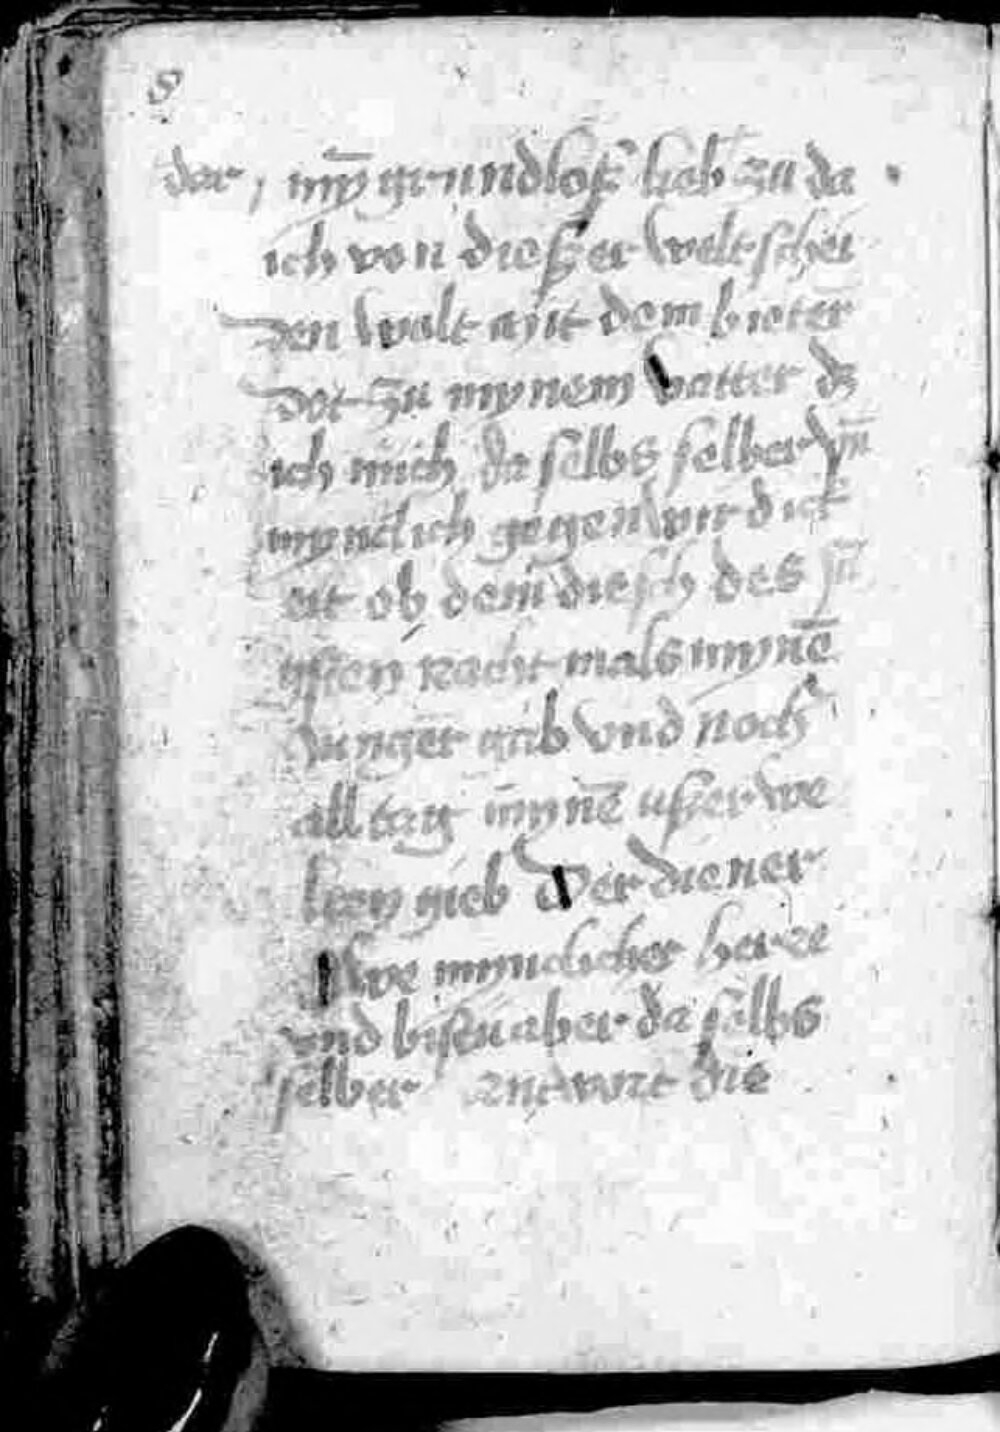 8
der / my̅ grundlos lieb zu da
ich von dießer welt schei
den wolt mit dem bieter
dot zu mynem vatter dz
ich mich da selbs selber
mynclich gegenwirdick
eit ob dem diesch des
nacht mals myne̅
junger gab vnd noch
all tag myne̅ ußerwe
lten gieb Der diener
Owe mynclicher herre
vnd bistu aber da selbs
selber antwort die